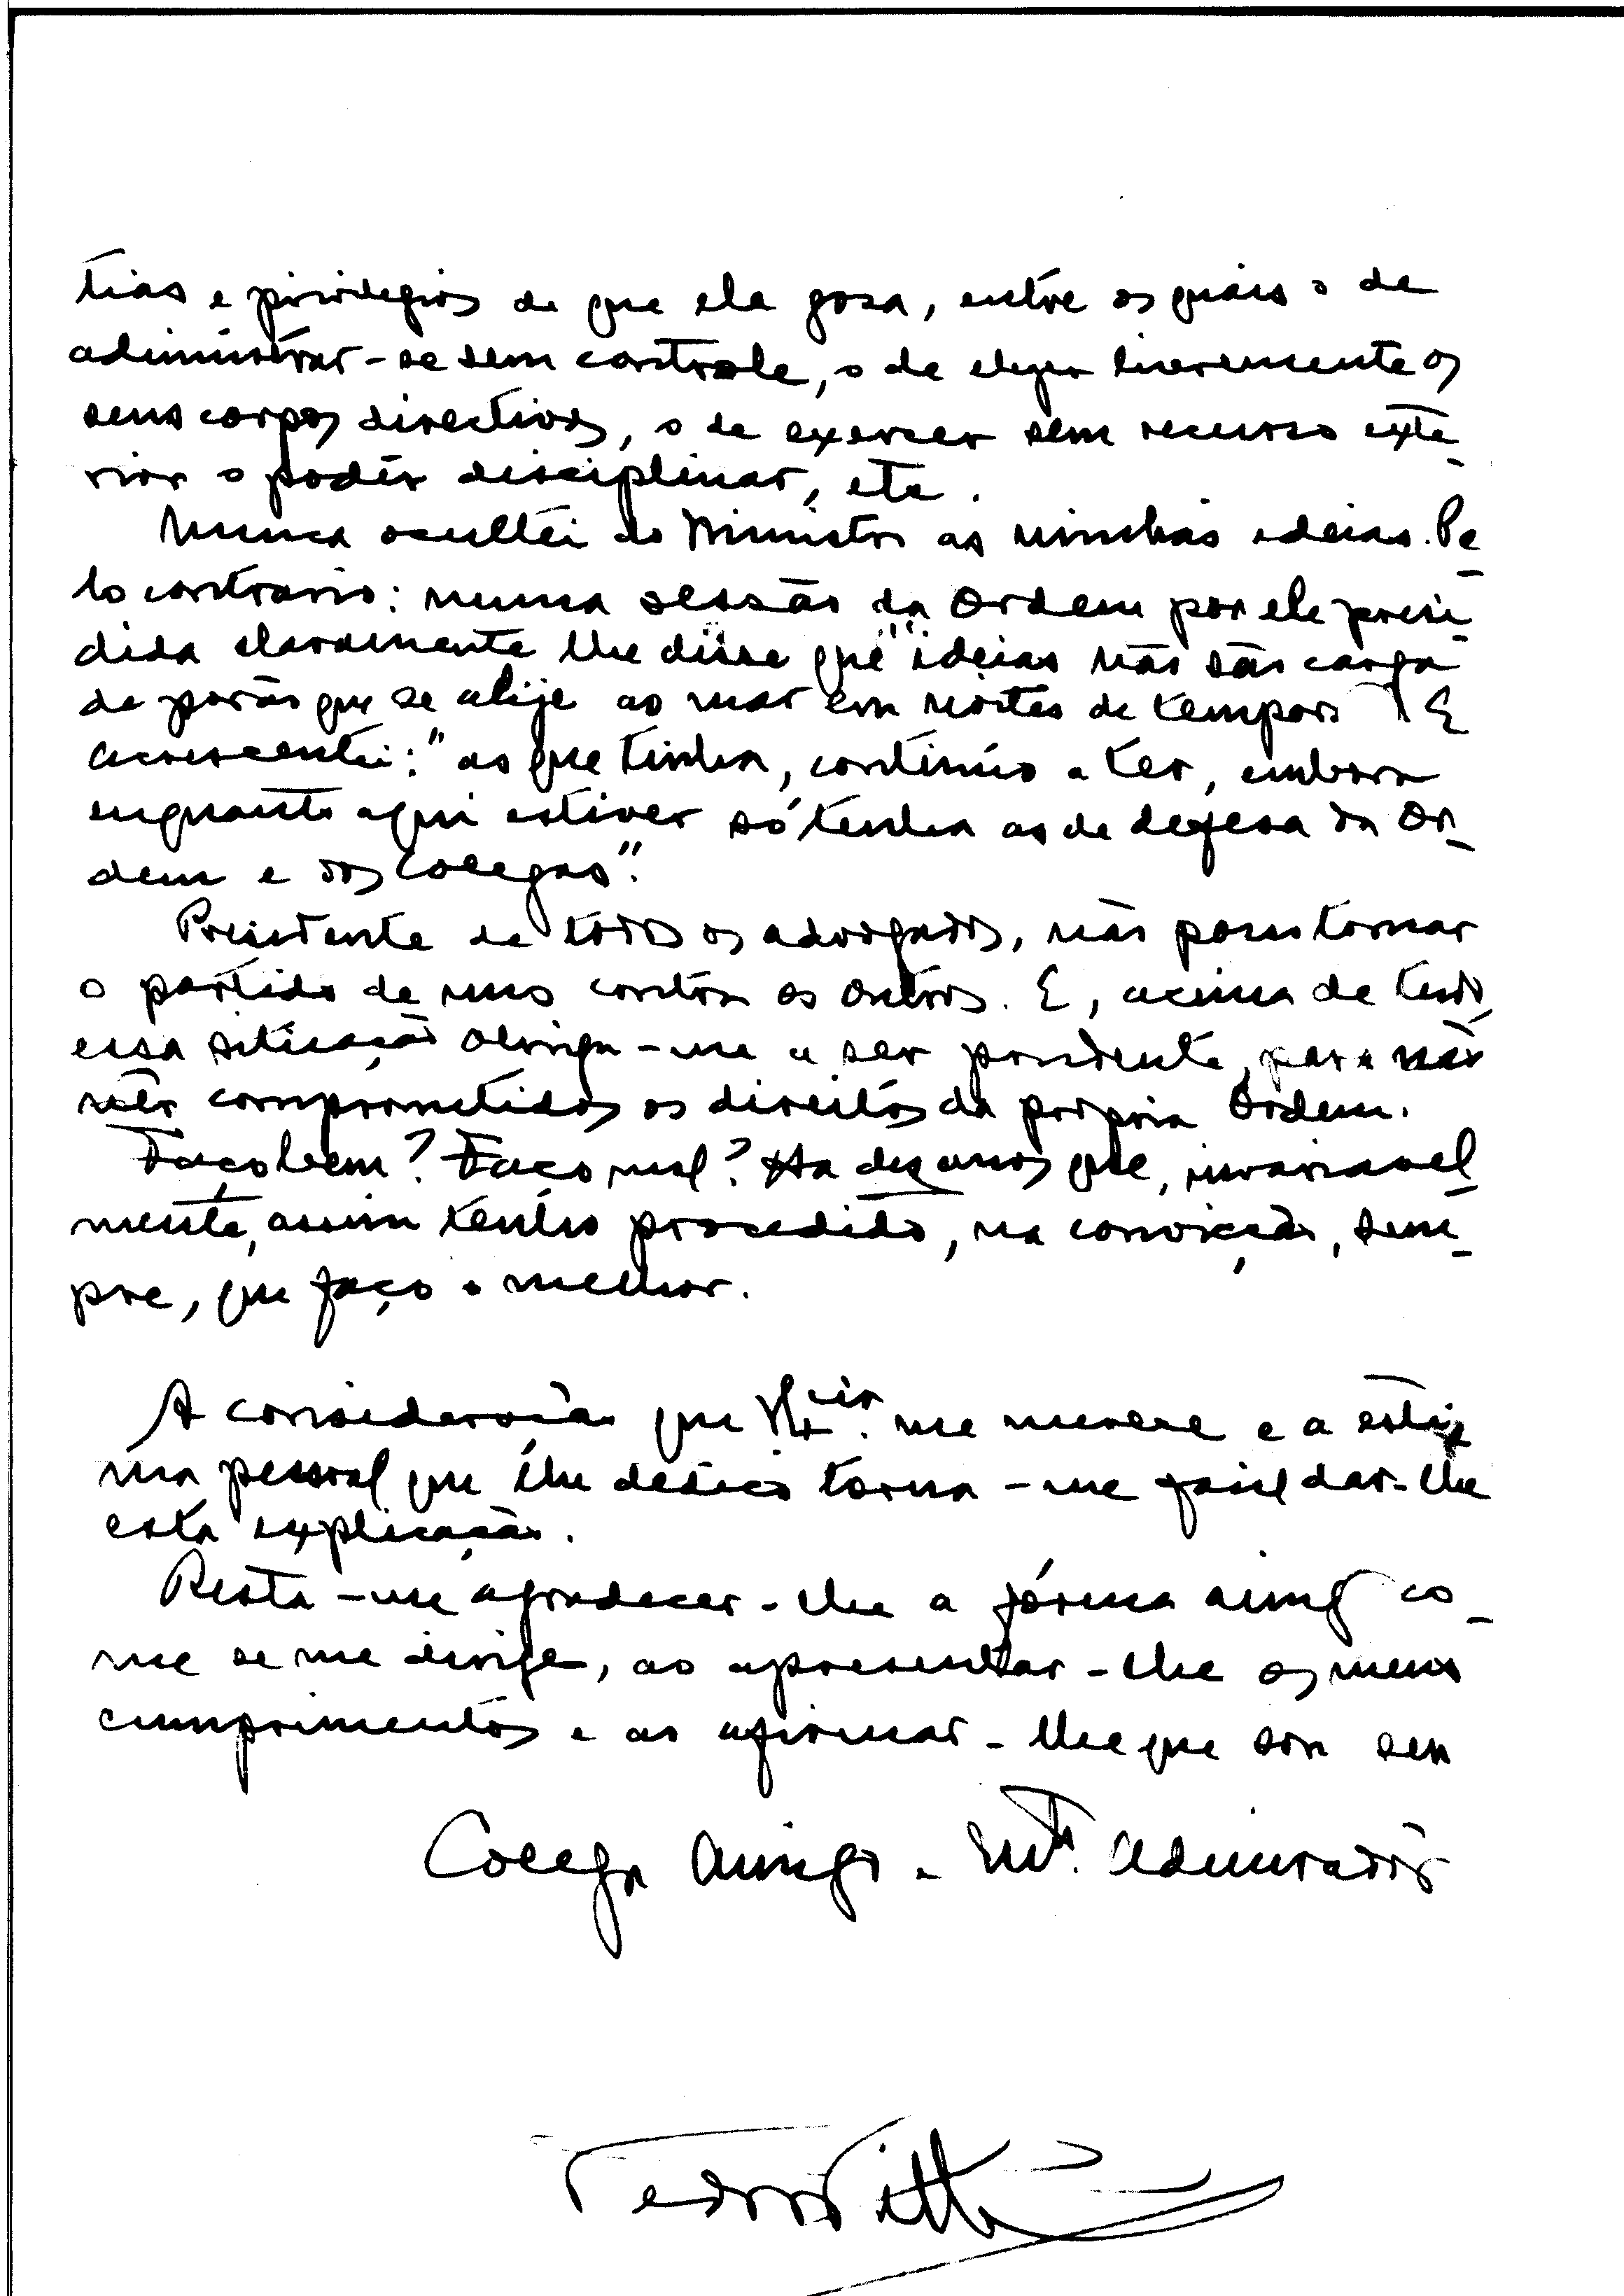 tias e privilegios de que ela gosa, entre os quais o de
administrar-se sem controle, o de eleger livremente os
seus corpos directivos, o de exercer sem recurso exte-
rior o podêr disciplinar, etc.
Nunca ocultei ao Ministro as minhas ideias. Pe-
lo contrario: numa sessão da Ordem por ele presi-
dida claramente lhe disse que "ideias não são carga
de porão que se alije ao mar em noites de temporal". E
acrescentei: "as que tinha, continúo a ter, embora
enquanto aqui estiver só tenha as de defesa da Or-
dem e dos Colegas".
Presidente de todos os advogados, não posso tomar
o partido de uns contra os outros. E, acima de tudo,
essa situação obriga-me a ser prudente, para não
vêr comprometidos os direitos da propria Ordem.
Faço bem? Faço mal? Ha dez anos que, invariavel-
mente, assim tenho procedido, na convicção, sem-
pre, que faço o melhor.
A consideração que V. Ex.cia me merece e a esti-
ma pessoal que lhe dedico torna-me facil dar-lhe
esta explicação.
Resta-me agradecer-lhe a fórma amig co-
mo se me dirige, ao apresentar-lhe os meus
cumprimentos e ao afirmar-lhe que sou seu
Colega Amigo e Mt.º Admirador
Pedro Pitta